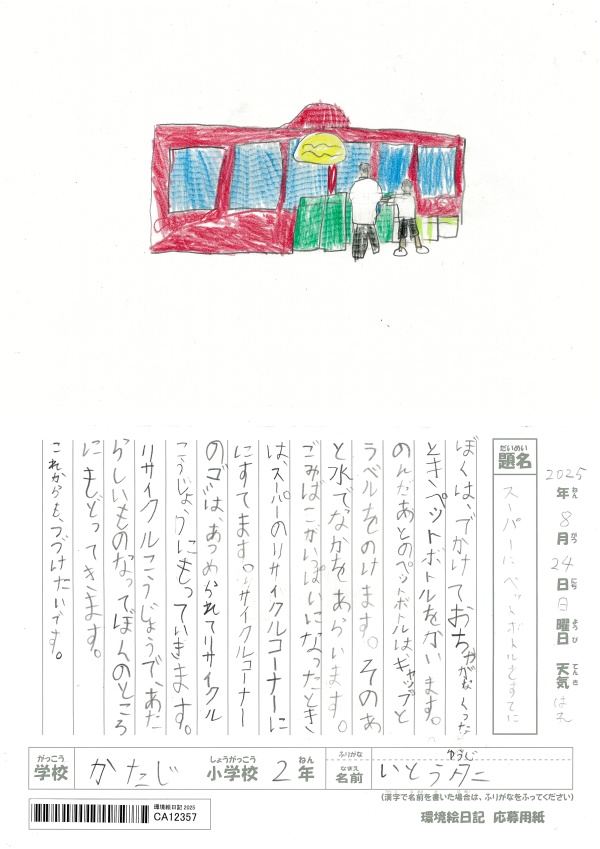 2025年8月24日日曜日 天気はれ
年ねん 月がつ 日にち 曜日ようび 天気てんき
だいめい
題名 スーパーにペットボトルをすてに
ぼくは、でかけておちゃがなくなった
ときペットボトルをかいます。
のんだあとのペットボトルは、キャップと
ラベルをのけます。そのあ
と水でなかをあらいます。
ごみばこがいっぱいになったとき
は、スーパーのリサイクルコーナーに
にすてます。リサイクルコーナー
のゴミは、あつめられてリサイクル
こうじょうにもっていきます。
リサイクルこうじょうで、あた
らしいものなってぼくのところ
にもどってきます。
これからも、つづけたいです。
がっこう しょうがっこう ねん ふりがな ゆうじ
学校 かたじ 小学校 2年 なまえ 名前 いとう夕二
(漢字で名前を書いた場合は、ふりがなをふってください)
環境絵日記 2025
CA12357
環境絵日記 応募用紙